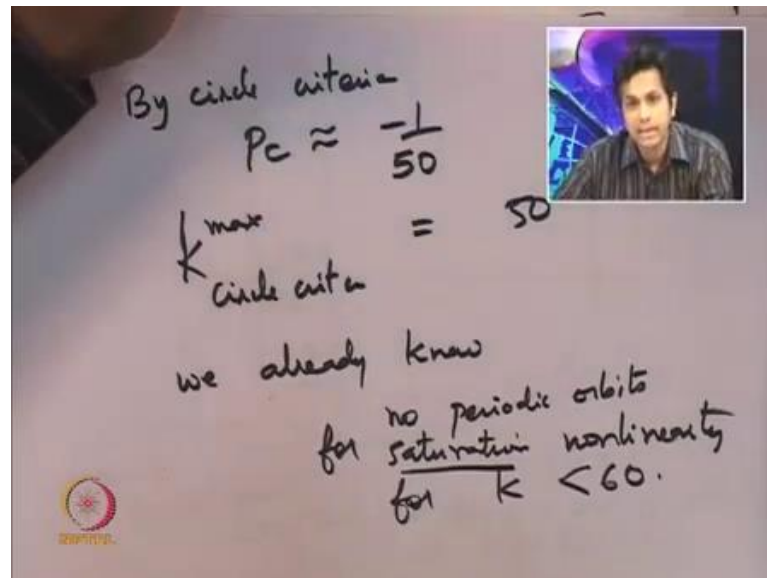 By circle criteria
Pc ≈ -1/50
K^max circle criten = 50
we already know
no periodic orbits
for saturation nonlinearity
for K < 60.
NPTEL